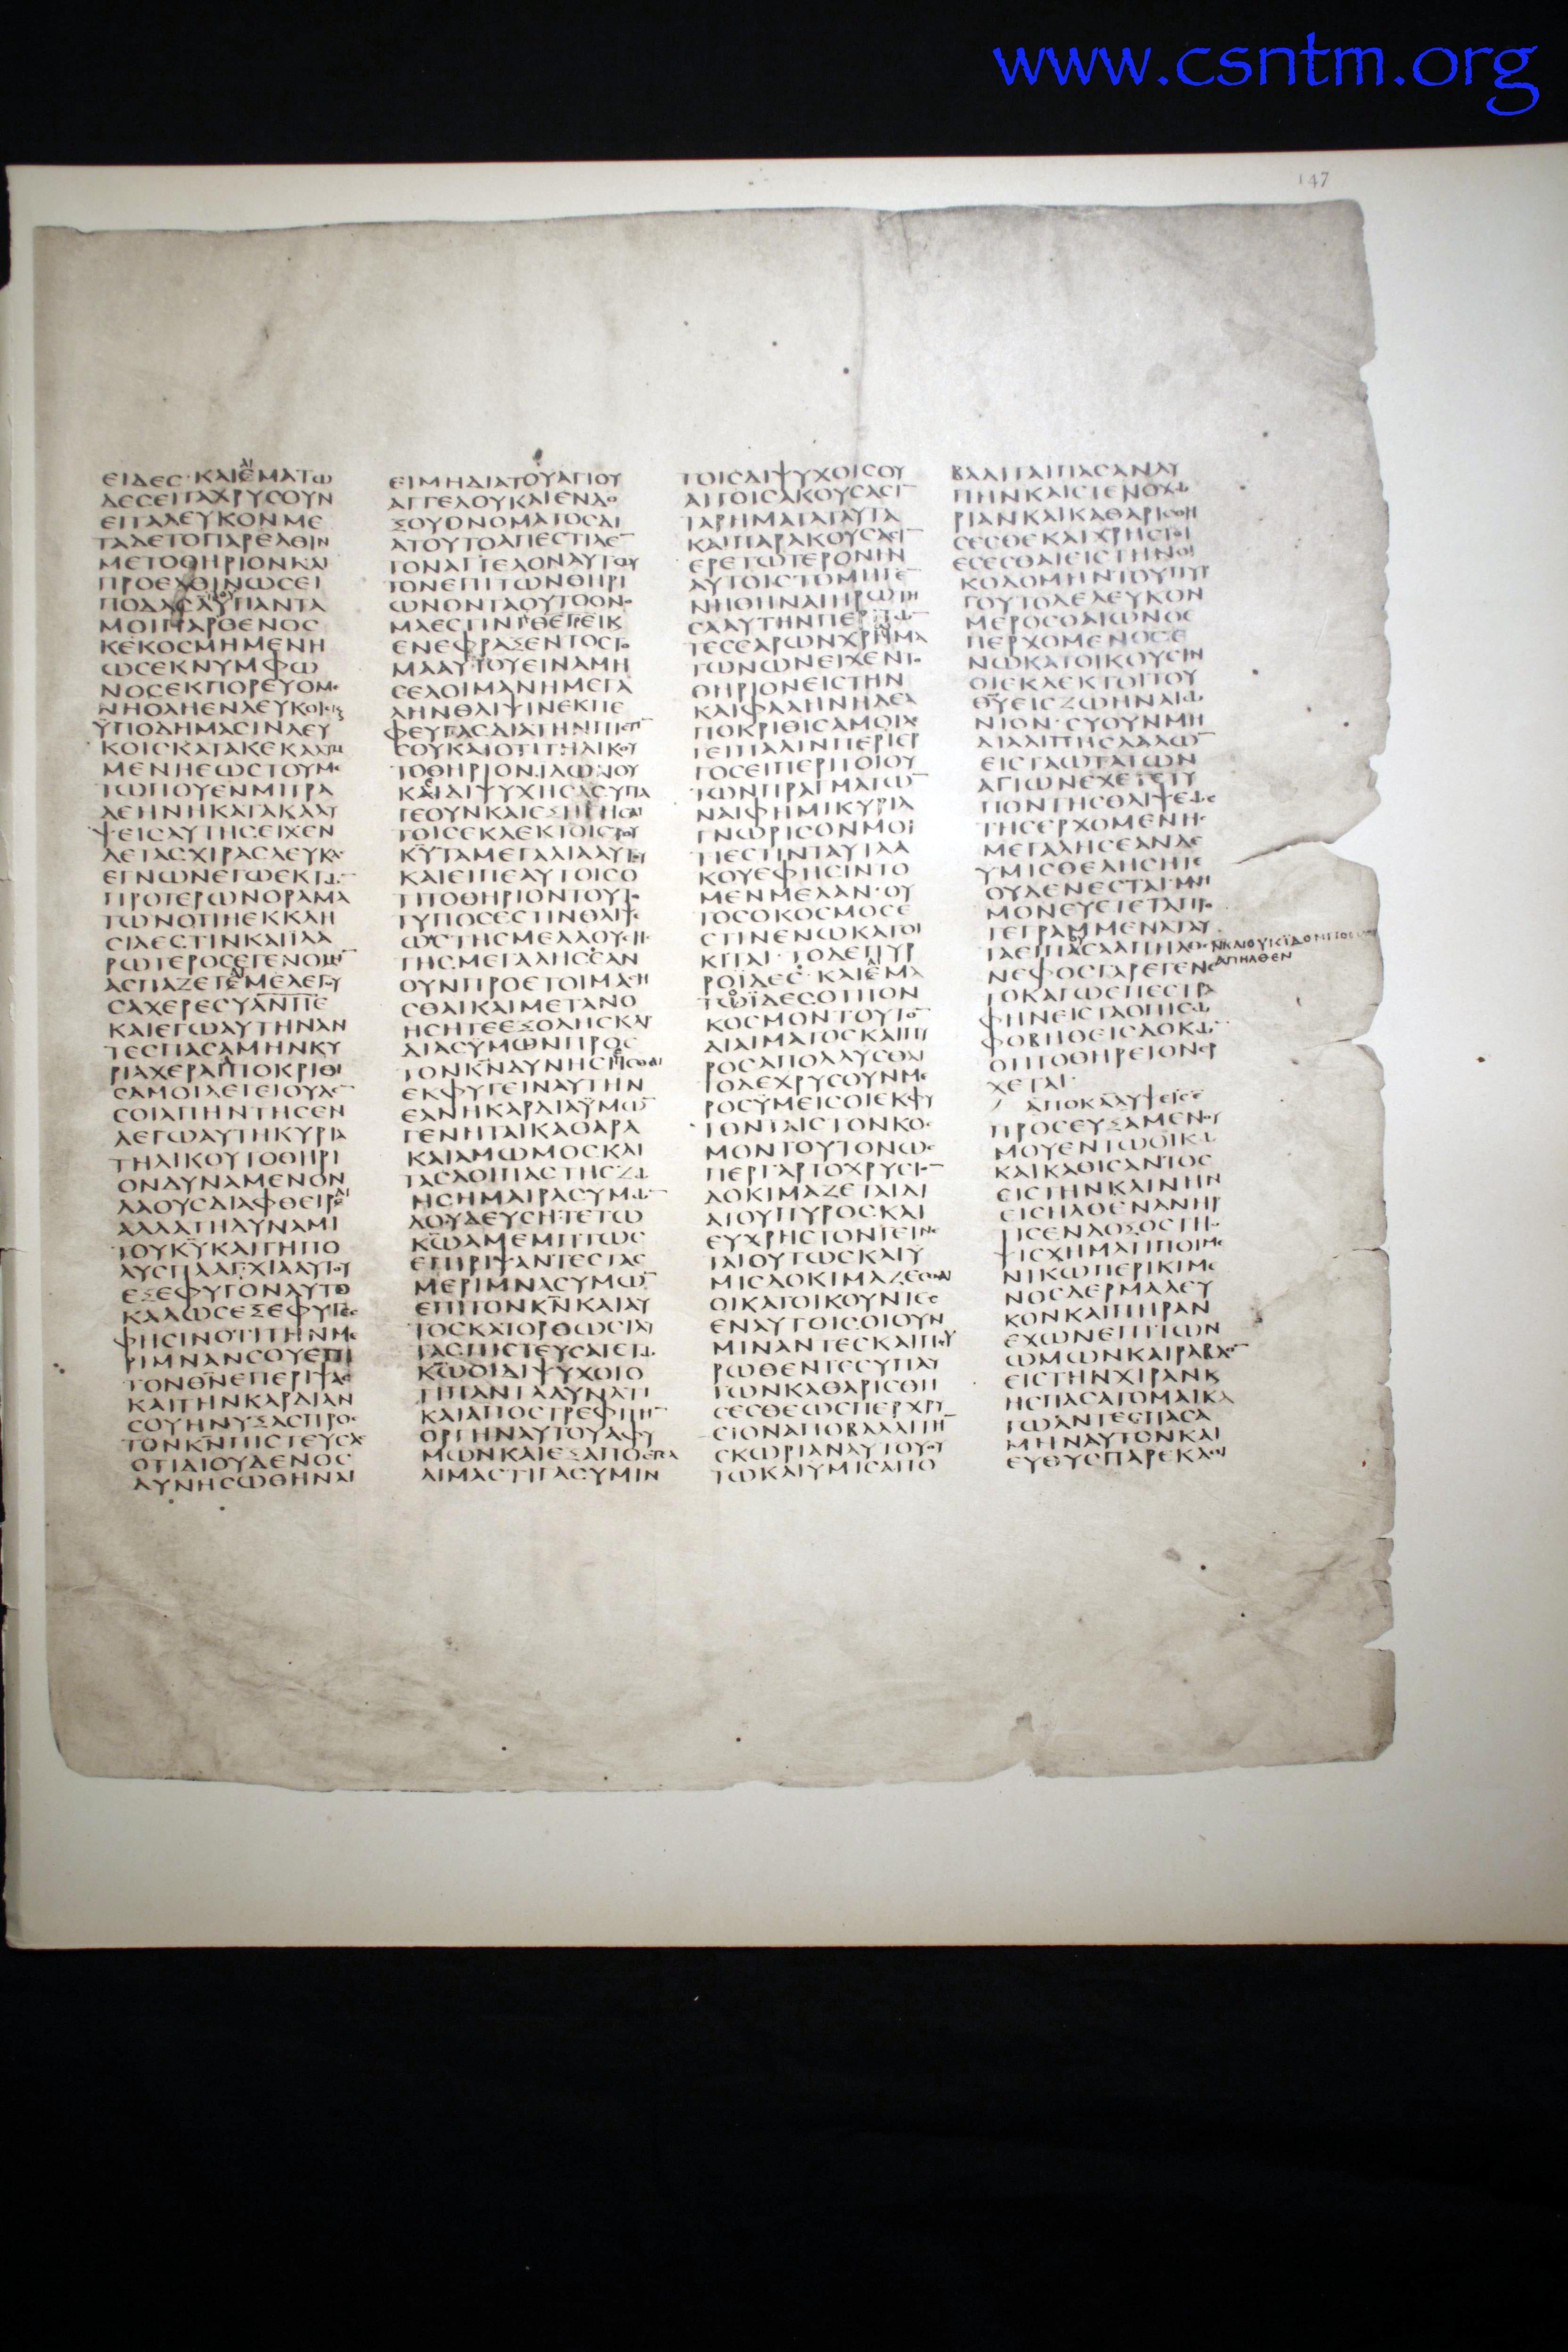 www.csntm.org
147
ΕΙΔΕϹ·ΚΑΙΕΜΑΤΩ
ΔΕϹΕΙΤΑΧΡΥϹΟΥΝ
ΕΙΤΑΛΕΥΚΟΝΜΕ
ΤΑΔΕΤΟΠΑΡΕΛΘΙΝ
ΜΕΤΟΘΗΡΙΟΝΚΑΙ
ΠΡΟΕΛΘΙΝΩϹΕΙ
ΜΟΙΠΑΡΘΕΝΟϹ
ΚΕΚΟϹΜΗΜΕΝΗ
ΩϹΕΚΝΥΜΦΩ
ΝΟϹΕΚΠΟΡΕΥΟΜΕ
ΫΠΟΔΗΜΑϹΙΝΛΕΥ
ΚΟΙϹΚΑΤΑΚΕΚΑΛΥΜ
ΜΕΝΗΕΩϹΤΟΥΜΕ
ΤΩΠΟΥΕΝΜΙΤΡΑ
ΔΕΗΝΗΚΑΤΑΚΑΛΥ
ΨΕΙϹΑΥΤΗϹΕΙΧΕΝ
ΔΕΤΑϹΧΙΡΑϹΛΕΥΚΑ
ΕΓΝΩΝΕΓΩΕΚΤΩ
ΠΡΟΤΕΡΩΝΟΡΑΜΑ
ΤΩΝΟΤΙΗΕΚΚΛΗ
ϹΙΑΕϹΤΙΝΚΑΙΪΛΑ
ΡΩΤΕΡΟϹΕΓΕΝΟΜΗ
ΑϹΠΑΖΕΤΕΜΕΛΕΓΟΥ
ϹΑΧΕΡΕϹΥΑΝΠΕ
ΚΑΙΕΓΩΑΥΤΗΝΑΝ
ΤΕϹΠΑϹΑΜΗΝΚΥ
ΡΙΑΧΕΡΑΠΟΚΡΙΘΙ
ϹΑΜΟΙΛΕΓΕΙΟΥΔΕ
ϹΟΙΑΠΗΝΤΗϹΕΝ
ΛΕΓΩΑΥΤΗΚΥΡΙΑ
ΤΗΛΙΚΟΥΤΟΘΗΡΙ
ΟΝΔΥΝΑΜΕΝΟΝ
ΛΑΟΥϹΔΙΑΦΘΕΙΡΕ
ΑΛΛΑΤΗΔΥΝΑΜΙ
ΤΟΥΚΥΚΑΙΤΗΠΟ
ΛΥϹΠΛΑΓΧΙΑΑΥΤΟΥ
ΕΞΕΦΥΓΟΝΑΥΤΟ
ΚΑΛΩϹΕΞΕΦΥΓΕϹ
ΦΗϹΙΝΟΤΙΤΗΝΜΕ
ΡΙΜΝΑΝϹΟΥΕΠΙ
ΤΟΝΘΝΕΠΕΡΙΨΑϹ
ΚΑΙΤΗΝΚΑΡΔΙΑΝ
ϹΟΥΗΝΥΞΑϹΠΡΟϹ
ΤΟΝΚΝΠΙϹΤΕΥϹΑϹ
ΟΤΙΔΙΟΥΔΕΝΟϹ
ΔΥΝΗϹΩΘΗΝΑΙ
ΕΙΜΗΔΙΑΤΟΥΑΓΙΟΥ
ΑΓΓΕΛΟΥΚΑΙΕΝΔΟ
ΞΟΥΟΝΟΜΑΤΟϹΔΙ
ΑΤΟΥΤΟΑΠΕϹΤΙΛΕ
ΤΟΝΑΓΓΕΛΟΝΑΥΤΟΥ
ΤΟΝΕΠΙΤΩΝΘΗΡΙ
ΩΝΟΝΤΑΟΥΤΟΟΝΟ
ΜΑΕϹΤΙΝΘΕΓΡΕΙΚ
ΕΝΕΦΡΑΞΕΝΤΟϹΤΟ
ΜΑΑΥΤΟΥΕΙΝΑΜΗ
ϹΕΛΟΙΜΑΝΗΜΕΓΑ
ΛΗΝΘΛΙΨΙΝΕΚΠΕ
ϹΟΥΚΑΙΟΤΙΤΗΛΙΚΟΥ
ΤΟΘΗΡΙΟΝΙΔΩΝΟΥ
ΚΑΙΔΙΨΥΧΗϹΑϹΥΠΑ
ΓΕΟΥΝΚΑΙΕΞΗΓΗϹΑΙ
ΤΟΙϹΕΚΛΕΚΤΟΙϹΤΟΥ
ΚΥΤΑΜΕΓΑΛΙΑΑΥΤΟΥ
ΚΑΙΕΙΠΕΑΥΤΟΙϹΟ
ΤΙΤΟΘΗΡΙΟΝΤΟΥΤΟ
ΤΥΠΟϹΕϹΤΙΝΘΛΙΨΕ
ΩϹΤΗϹΜΕΛΛΟΥϹΗϹ
ΤΗϹΜΕΓΑΛΗϹΕΑΝ
ΟΥΝΠΡΟΕΤΟΙΜΑϹΗ
ϹΘΑΙΚΑΙΜΕΤΑΝΟ
ΗϹΗΤΕΕΞΟΛΗϹΚΑΡ
ΔΙΑϹΥΜΩΝΠΡΟϹ
ΤΟΝΚΝΔΥΝΗϹΕϹΘΑΙ
ΕΚΦΥΓΕΙΝΑΥΤΗΝ
ΕΑΝΗΚΑΡΔΙΑΫΜΩ
ΓΕΝΗΤΑΙΚΑΘΑΡΑ
ΚΑΙΑΜΩΜΟϹΚΑΙ
ΤΑϹΛΟΙΠΑϹΤΗϹΖΩ
ΗϹΗΜΑΙΡΑϹΥΜΩ
ΔΟΥΛΕΥϹΗΤΕΤΩ
ΚΩΑΜΕΜΠΤΩϹ
ΕΠΙΡΙΨΑΝΤΕϹΤΑϹ
ΜΕΡΙΜΝΑϹΥΜΩ
ΕΠΙΤΟΝΚΝΚΑΙΑΥ
ΤΟϹΚΑΤΟΡΘΩϹΙΑΥ
ΤΑϹΠΙϹΤΕΥϹΑΙΕΤΩ
ΚΩΟΙΔΙΨΥΧΟΙΟ
ΤΙΠΑΝΤΑΔΥΝΑΤΙ
ΚΑΙΑΠΟϹΤΡΕΦΙΤΗ
ΟΡΓΗΝΑΥΤΟΥΑΦΥ
ΜΩΝΚΑΙΕΞΑΠΟϹΤΕΛΛ
ΑΙΜΑϹΤΙΓΑϹΥΜΙΝ
ΤΟΙϹΔΙΨΥΧΟΙϹΟΥ
ΑΙΤΟΙϹΑΚΟΥϹΑϹΙ
ΤΑΡΗΜΑΤΑΤΑΥΤΑ
ΚΑΙΠΑΡΑΚΟΥϹΑϹΙ
ΕΡΕΤΩΤΕΡΟΝΗΝ
ΑΥΤΟΙϹΤΟΜΗΓΕ
ΝΗΘΗΝΑΙΗΡΩΤΗ
ϹΑΑΥΤΗΝΠΕΡΙΤΩ
ΤΕϹϹΑΡΩΝΧΡΗΜΑ
ΤΩΝΩΝΕΙΧΕΝΤΟ
ΘΗΡΙΟΝΕΙϹΤΗΝ
ΠΟΚΡΙΘΙϹΑΜΟΙΛΕ
ΓΕΙΠΑΛΙΝΠΕΡΙΕΡ
ΓΟϹΕΙΠΕΡΙΤΟΙΟΥ
ΤΩΝΠΡΑΓΜΑΤΩ
ΝΑΙΦΗΜΙΚΥΡΙΑ
ΓΝΩΡΙϹΟΝΜΟΙ
ΤΙΕϹΤΙΝΤΑΥΤΑΑ
ΚΟΥΕΦΗϹΙΝΤΟ
ΜΕΝΜΕΛΑΝ·ΟΥ
ΤΟϹΟΚΟϹΜΟϹΕ
ϹΤΙΝΕΝΩΚΑΤΟΙ
ΚΙΤΑΙ·ΤΟΔΕΠΥΡ
ΡΟΪΔΕϹ·ΚΑΙΕΜΑ
ΤΩΪΔΕϹΟΤΙΤΟΝ
ΚΟϹΜΟΝΤΟΥΤΟ
ΔΙΑΙΜΑΤΟϹΚΑΙΠΥ
ΡΟϹΑΠΟΛΛΥϹΘΑΙ
ΤΟΔΕΧΡΥϹΟΥΝΜΕ
ΡΟϹΫΜΕΙϹΟΙΕΚΦΥ
ΓΟΝΤΑΙϹΤΟΝΚΟϹ
ΜΟΝΤΟΥΤΟΝΩϹ
ΠΕΡΓΑΡΤΟΧΡΥϹΙΟ
ΔΟΚΙΜΑΖΕΤΑΙΔΙ
ΔΙΟΥΠΥΡΟϹΚΑΙ
ΕΥΧΡΗϹΤΟΝΓΕΙΝΕ
ΤΑΙΟΥΤΩϹΚΑΙΥ
ΜΙϹΔΟΚΙΜΑΖΕϹΘΑΙ
ΟΙΚΑΤΟΙΚΟΥΝΤΕϹ
ΕΝΑΥΤΟΙϹΟΙΟΥΝ
ΜΙΝΑΝΤΕϹΚΑΙΠΥ
ΡΩΘΕΝΤΕϹΥΠΑΥ
ΤΩΝΚΑΘΑΡΙϹΘΗ
ϹΕϹΘΕΩϹΠΕΡΧΡΥ
ϹΙΟΝΑΠΟΒΑΛΛΙΤΗ
ϹΚΩΡΙΑΝΑΥΤΟΥΟΥ
ΤΩΚΑΙΥΜΙϹΑΠΟ
ΒΑΛΙΤΑΙΠΑϹΑΝΛΥ
ΠΗΝΚΑΙϹΤΕΝΟΧΩ
ΡΙΑΝΚΑΙΚΑΘΑΡΙϹΘΗ
ϹΕϹΘΕΚΑΙΧΡΗϹΤΟΙ
ΕϹΕϹΘΑΙΕΙϹΤΗΝΟΙ
ΚΟΔΟΜΗΝΤΟΥΠΥΡ
ΓΟΥΤΟΔΕΛΕΥΚΟΝ
ΜΕΡΟϹΟΑΙΩΝΟϹ
ΠΕΡΧΟΜΕΝΟϹΕ
ΝΩΚΑΤΟΙΚΟΥϹΙΝ
ΟΙΕΚΛΕΚΤΟΙΤΟΥ
ΘΥΕΙϹΖΩΗΝΑΙΩ
ΝΙΟΝ·ϹΥΟΥΝΜΗ
ΔΙΑΛΙΠΗϹΛΑΛΩ
ΕΙϹΤΑΩΤΑΤΩΝ
ΑΓΙΩΝΕΧΕΤΕΤΥ
ΠΟΝΤΗϹΘΛΙΨΕΩϹ
ΤΗϹΕΡΧΟΜΕΝΗϹ
ΜΕΓΑΛΗϹΕΑΝΔΕ
ΥΜΙϹΘΕΛΗϹΗΤΕ
ΟΥΔΕΝΕϹΤΑΙΜΝΗ
ΜΟΝΕΥΕΤΕΤΑΠΡΟ
ΓΕΓΡΑΜΜΕΝΑΤΑΥ
ΝΕΦΟϹΓΑΡΕΓΕΝΕ
ΤΟΚΑΓΩΕΠΕϹΤΡΑ
ΦΗΝΕΙϹΤΑΟΠΙϹΩ
ΦΟΒΗΘΕΙϹΔΟΚΩ
ΟΤΙΤΟΘΗΡΕΙΟΝΕΡ
ΧΕΤΑΙ·
ΑΠΟΚΑΛΥΨΕΙϹΕ
ΠΡΟϹΕΥΞΑΜΕΝΟΥ
ΜΟΥΕΝΤΩΟΙΚΩ
ΚΑΙΚΑΘΙϹΑΝΤΟϹ
ΕΙϹΤΗΝΚΛΙΝΗΝ
ΕΙϹΗΛΘΕΝΑΝΗΡ
ΤΙϹΕΝΔΟΞΟϹΤΗ
ΨΙϹΧΗΜΑΤΙΠΟΙΜΕ
ΝΙΚΩΠΕΡΙΚΙΜΕ
ΝΟϹΔΕΡΜΑΛΕΥ
ΚΟΝΚΑΙΠΗΡΑΝ
ΕΧΩΝΕΠΙΤΩΝ
ΩΜΩΝΚΑΙΡΑΒΔΟ
ΕΙϹΤΗΝΧΙΡΑΝΚ
ΗϹΠΑϹΑΤΟΜΑΙΚΑ
ΓΩΑΝΤΕϹΠΑϹΑ
ΜΗΝΑΥΤΟΝΚΑΙ
ΕΥΘΥϹΠΑΡΕΚΑΘΙ